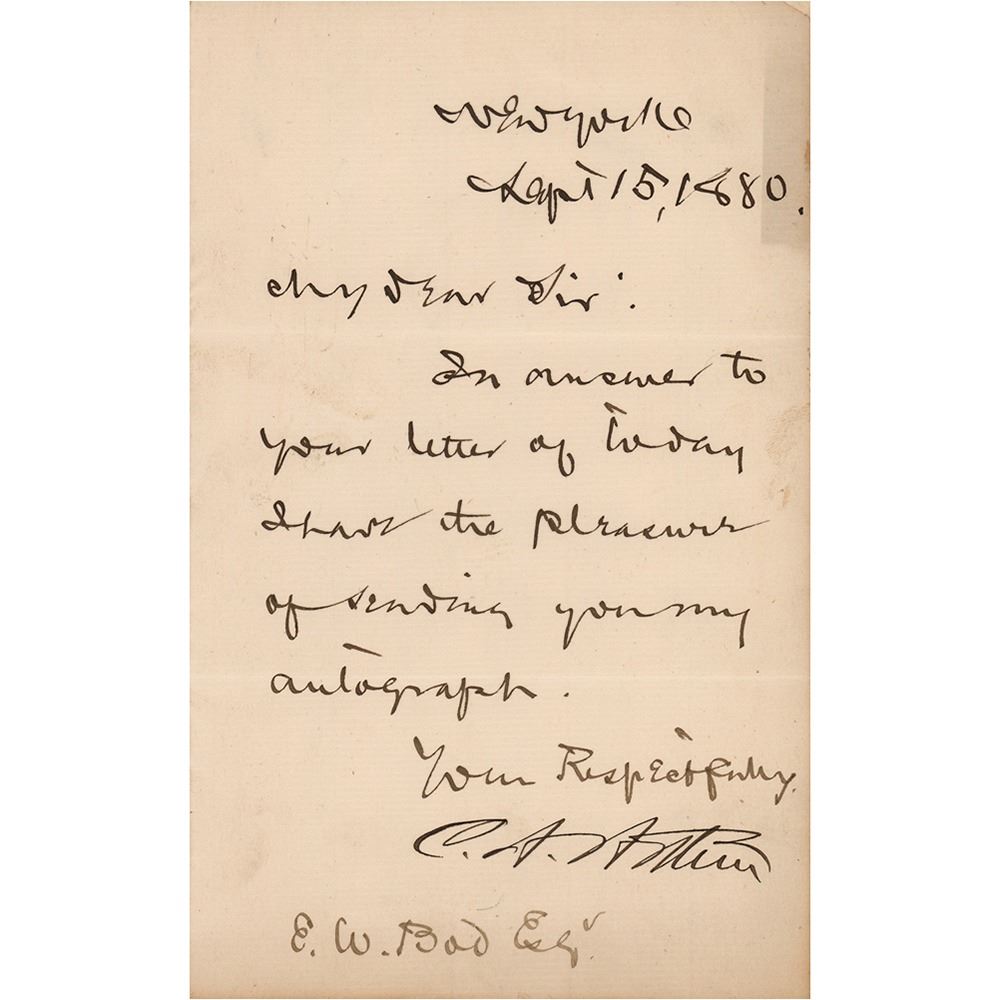 New York
Sept 15, 1880.
My dear Sir:
In answer to
your letter of today
I have the pleasure
of sending you my
autograph.
Your Respectfully,
C. A. Arthur
E. W. Bod Esqr